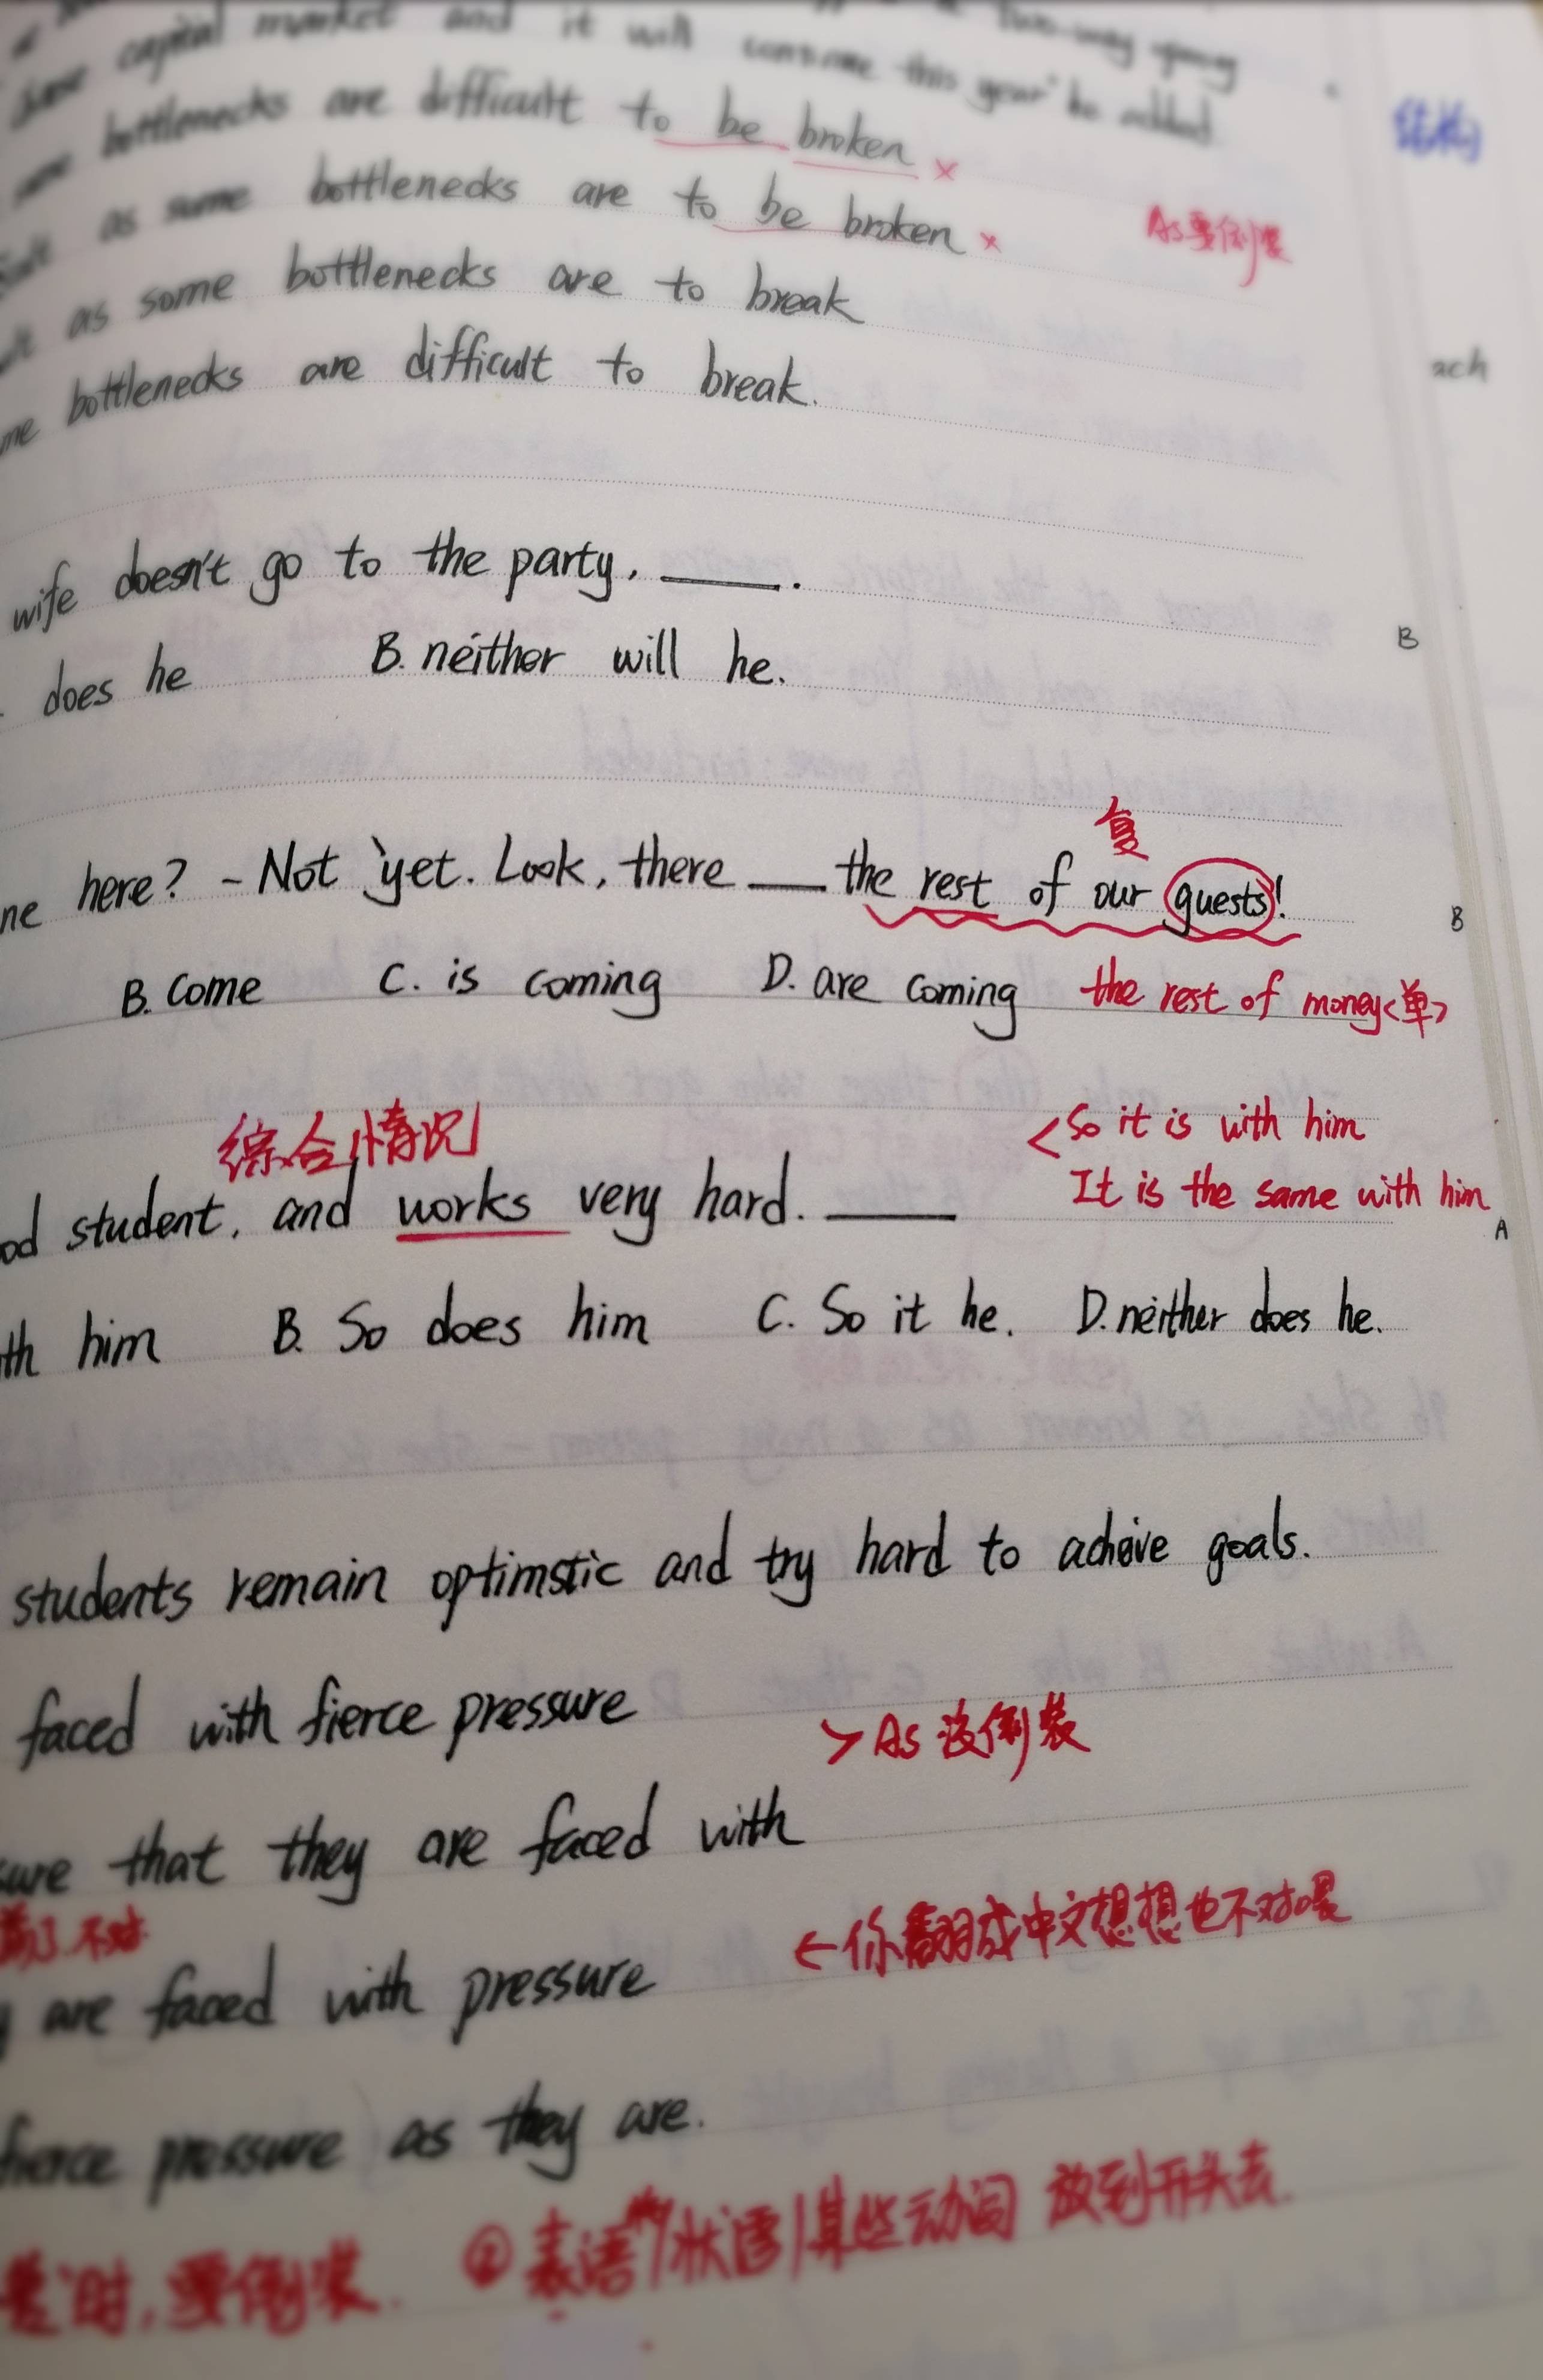 capital market and it will continue this year" he added
bottlenecks are difficult to be broken ×
结构
as some bottlenecks are to be broken ×
As要倒装
as some bottlenecks are to break
bottlenecks are difficult to break.
ach
wife doesn't go to the party, ____.
B
does he B. neither will he.
复
here? - Not yet. Look, there ____ the rest of our guests!
B
B. come C. is coming D. are coming the rest of money<单>
综合情况
<So it is with him
It is the same with him
student, and works very hard. ____
A
th him B. So does him C. So it he. D. neither does he.
students remain optimstic and try hard to acheive goals.
faced with fierce pressure
>As 没倒装
that they are faced with
不对
←你翻成中文想想也不对喂
are faced with pressure
fierce pressure as they are.
时,要倒装. ②表语/状语/某些动词 放到开头去.